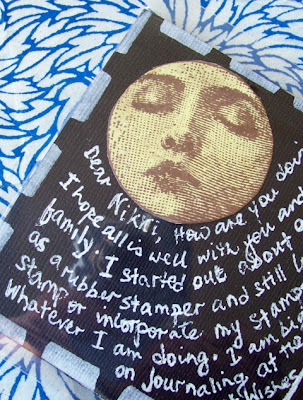 Dear Kikki, How are you doin
I hope all is well with you and
family. I started out about
as a rubber stamper and still
stamp or incorporate my stamp
Whatever I am doing. I am
on journaling at the
Wishes